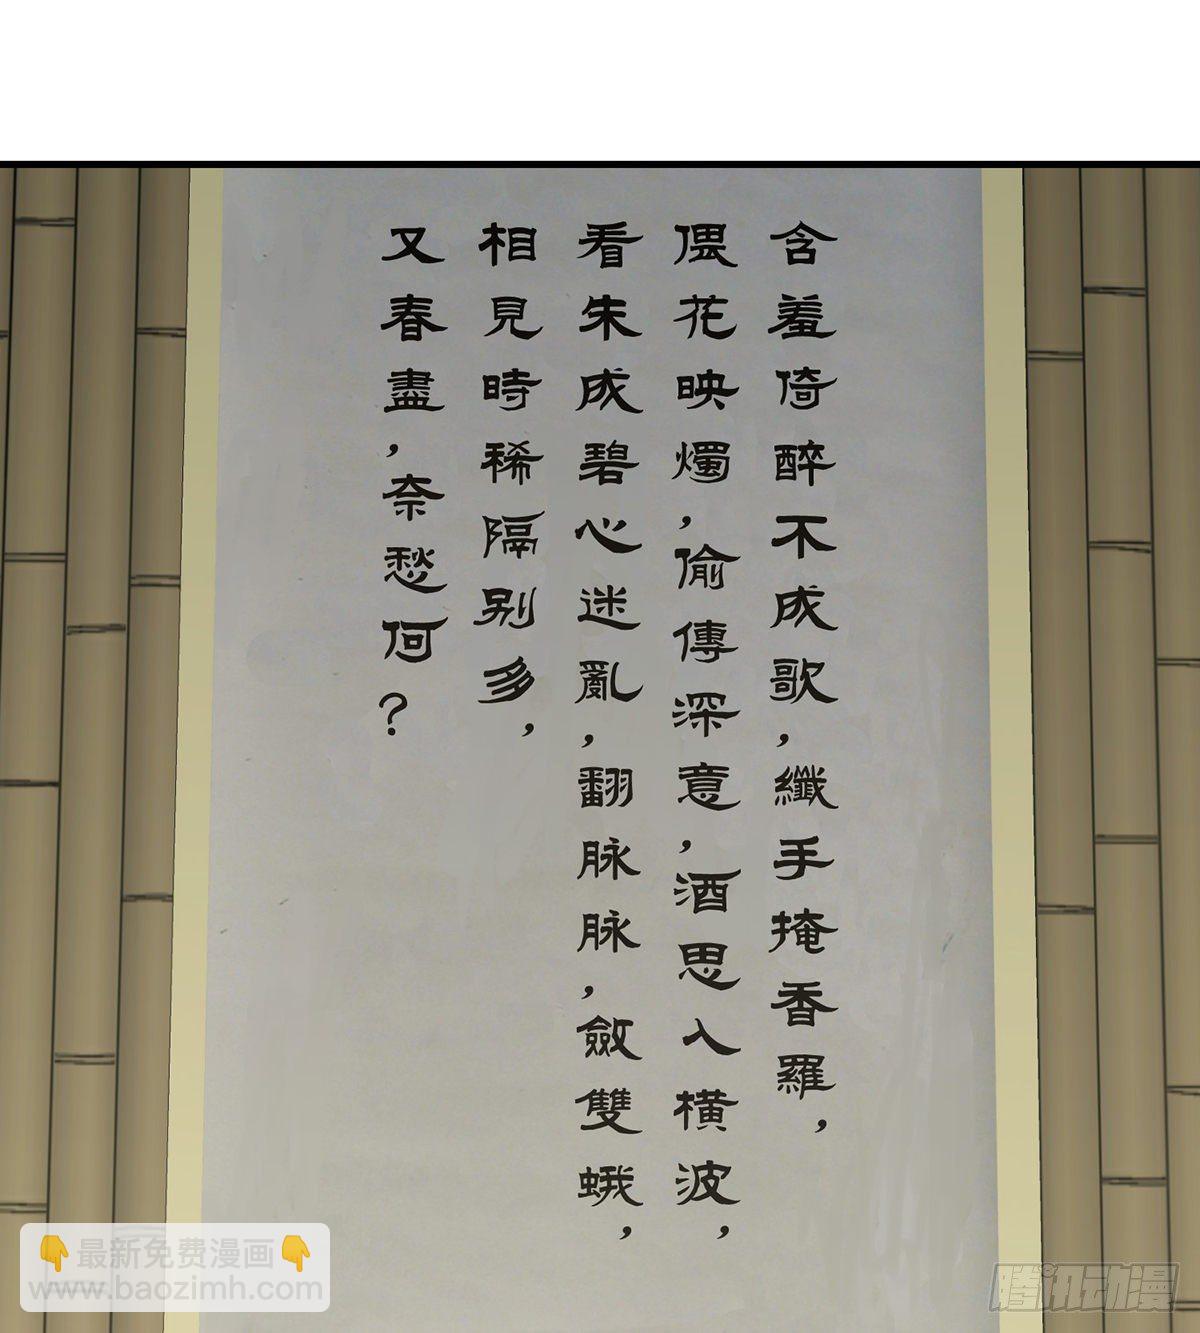 含羞倚醉不成歌,纖手掩香羅,
偎花映燭,偷傳深意,酒思入橫波,
看朱成碧心迷亂,翻脉脉,斂雙蛾,
相見時稀隔别多,
又春盡,奈愁何?
👇最新免费漫画👇
www.baozimh.com
腾讯动漫